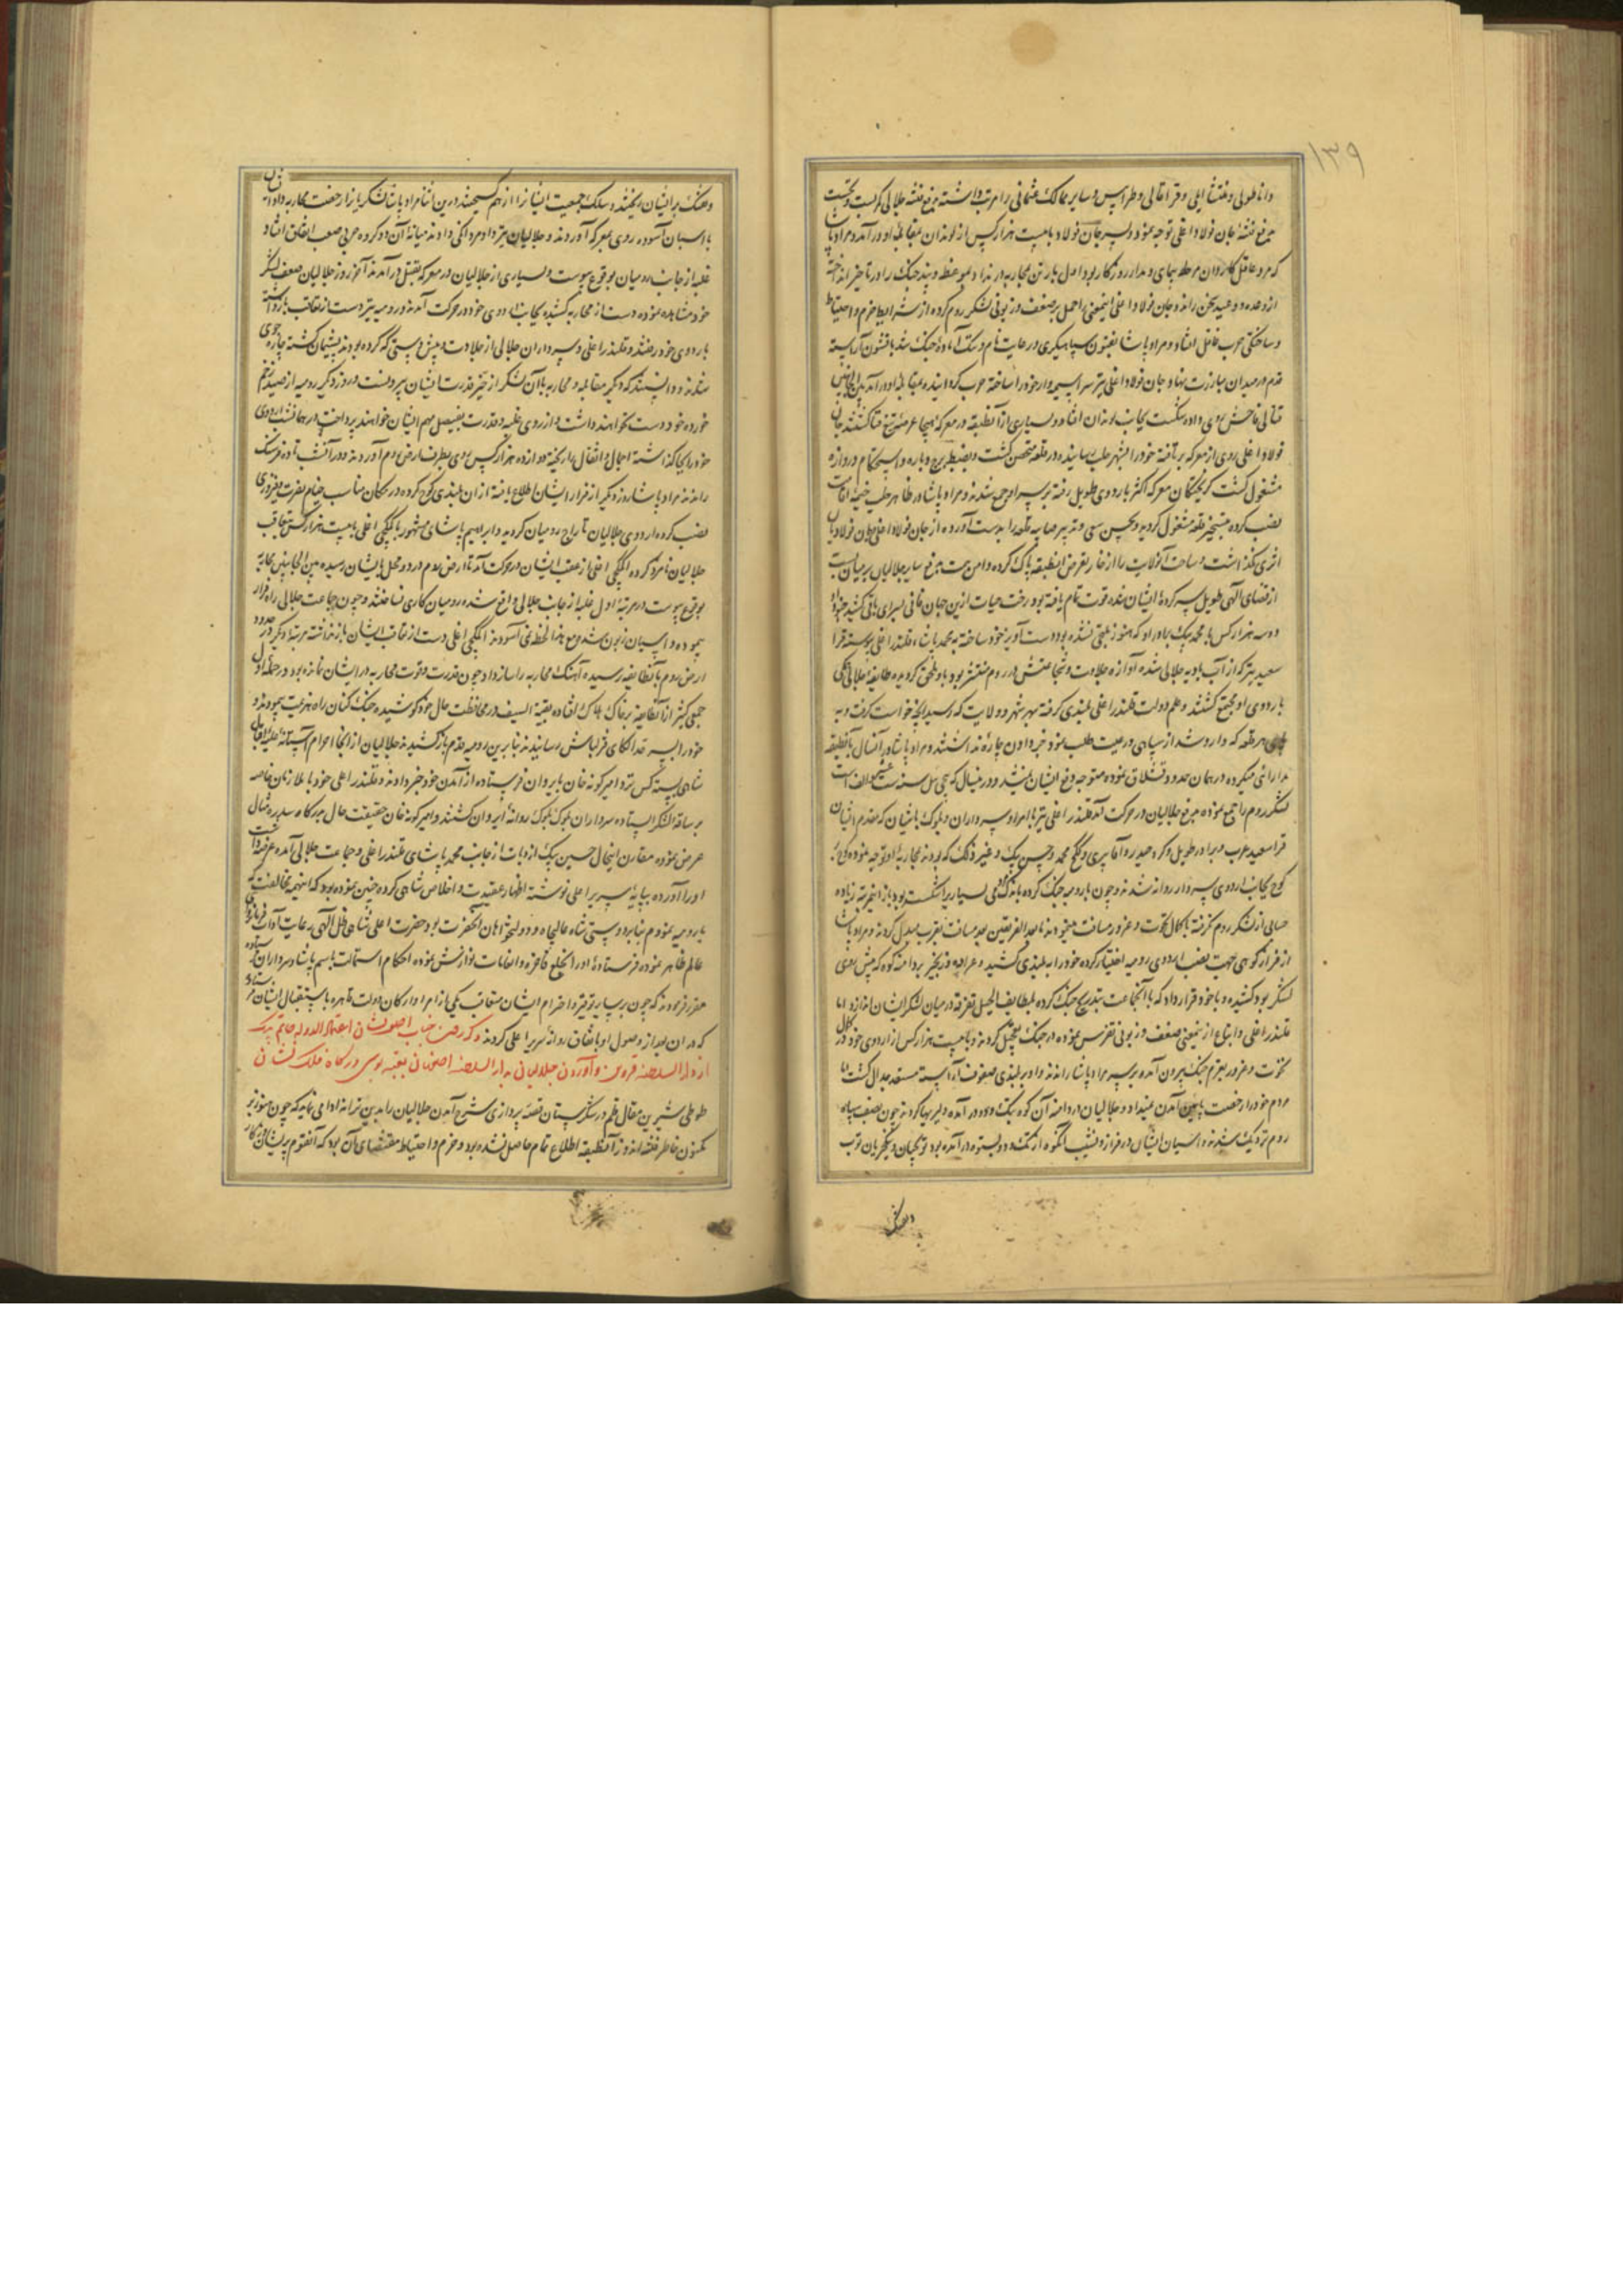 ۱۳۹
و اناطولی و منتشا ایلی و قراقالی و طرابلس و سایر ممالک عثمانی را مرتب داشته بدفع فتنه جلالی کمر بست و نخست
بدفع فتنه جان فولاد اغلی توجه نمود و پسر جان فولاد با بیست هزار کس از لوندان بمقابله او در آمد و مراد پاشا
که مرد عاقل کاردان مرحله پیمای و مدار روزگار بود اول بار تن بمحاربه در نداد بموعظه و پند جنگ را در تاخیر انداخته
از وعده و وعید سخن راند و جان فولاد اغلی اینمعنی را حمل بر ضعف و زبونی لشکر روم کرده از شرایط حزم و احتیاط
و ساختگی حرب غافل افتاد و مراد پاشا بفنون سپاهیگری و رعایت نام و ننگ آماده جنگ شد با قشون آراسته
قدم در میدان مبارزت نهاد و جان فولاد اغلی نیز سراسیمه وار خود را ساخته حرب گردانید و بمقابله او در آمد بین الجانبین
قتالی فاحش روی داده شکست بجانب لوندان افتاد و بسیاری از آنطبقه در معرکه هیجا عرضه تیغ فنا گشتند جان
فولاد اغلی روی از معرکه برتافته خود را بشهر حلب رسانیده در قلعه متحصن گشت و بضبط برج و باره و استحکام دروازه
مشغول گشت گریختگان معرکه اکثر باردوی طویل رفته بر سر او جمع شدند و مراد پاشا در ظاهر حلب خیمه اقامت
نصب کرده بتسخیر قلعه مشغول گردید و بحسن سعی و تدبیر صایب قلعه را بدست آورده از جان فولاد اغلی و جان فولادیان
اثری نگذاشت و ساحت آنولایت را از خار تعرض آنطبقه پاک کرده دامن همت بدفع سایر جلالیان بر میان بست
از قضای الهی طویل سرکرده ایشان شده قوت تمام یافته بود رخت حیات ازین جهان فانی بسرای باقی کشید
دوسه هزار کس با محمد بیک برادر او که هنوز ملتجی نشده بود دست آویز خود ساخته به محمد پاشا و قلندر اغلی پیوسته قرا
سعید نیز که از آب بادیه جلالی شده آوازه جلادت و شجاعتش در روم منتشر بود باو ملحق گردیده طایفه جلالی
باردوی او مجتمع گشتند و علم دولت قلندر اغلی بلندی گرفته بهر شهر و ولایت که رسید آنچه خواست گرفت و به
هر قلعه که وارد شد از سپاهی و رعیت طلب نمود خبر دادن چاره نداشتند و مراد پاشا در آنسال با آنطبقه
مدارائی میکرده در همان حدود قشلاق نموده متوجه دفع ایشان نمیشد و درینسال که
لشکر روم را جمع نموده بدفع جلالیان در حرکت آمد قلندر اغلی نیز با امرا و سرداران و بلوک باشیان که مقدم ایشان
قرا سعید عرب و برادر طویل و کرد حیدر و آقا پیری و کلج محمد و حسین بیک و غیر ذلک که بودند بمحاربه او توجه نموده کوچ بر
کوچ بجانب اردوی سردار روانه شدند و چون با رومیه جنگ کرده باندک مردمی بسیار را شکست بودند ازین مرتبه زیاده
حسابی از لشکر روم نگرفته با کمال نخوت و غرور مسافت میپیمودند تا بعد الفریقین بعد مسافت بقرب مبدل گردید و مراد پاشا
از فراز کوهی جهت نصب اردوی رومیه اختیار کرده خود را به بلندی کشید و عرابه و زنجیر بر دامنه کوه که پیش روی
لشکر بود کشیده و با خود قرار داد که با آنجماعت بتدریج جنگ کرده بلطایف الحیل تفرقه در میان لشکر ایشان اندازد اما
قلندر اغلی و اتباع از اینمعنی ضعف و زبونی تفرس نموده در جنگ تعجیل کردند و با بیست هزار کس از اردوی خود در کمال
نخوت و غرور بعزم جنگ بیرون آمده بر سر مراد پاشا راندند و او بر بلندی صفوف آراسته مستعد جدال گشت اما
مردم خود را رخصت پایین آمدن نمیداد و جلالیان در دامنه آن کوه بتک و دو در آمده دلیریها کردند چون بصف سپاه
روم نزدیک شدند و اسبان ایشان در فراز و نشیب آنکوه از تک و دو بستوه در آمده بود توپچیان و ینگچریان توپ
و تفنگ
و تفنگ بر ایشان ریختند و سلک جمعیت ایشان را از هم گسیختند درین اثنا مراد پاشا لشکریان را رخصت محاربه داد و ایشان
با اسبان آسوده روی بمعرکه آوردند و جلالیان نیز داد مردانگی دادند میانه آن دو گروه حربی صعب اتفاق افتاد
غلبه از جانب رومیان بوقوع پیوست و بسیاری از جلالیان در معرکه بقتل در آمدند آخر روز جلالیان ضعف لشکر
خود مشاهده نموده دست از محاربه کشیده بجانب اردوی خود در حرکت آمدند و رومیه نیز دست از تعاقب باز داشته
باردوی خود رفتند و قلندر اغلی و سرداران جلالی از جلادت و پیش دستی که کرده بودند پشیمان گشته چاره جوی
شدند و دانستند که دیگر مقابله و محاربه با آن لشکر از حیز قدرت ایشان بیرونست و روز دیگر رومیه از صید زخم
خورده خود دست نخواهند داشت و از روی غلبه و قدرت بفیصل مهم ایشان خواهند پرداخت در همان شب اردوی
خود را بجا گذاشته احمال و اثقال را ریخته دوازده هزار کس روی بطرف ارض روم آوردند و در آنشب تا ده فرسنگ
راندند مراد پاشا روز دیگر از فرار ایشان اطلاع یافته از آن بلندی کوچ کرده در مکان مناسب خیام نصرت و فیروزی
نصب کرده اردوی جلالیان تاراج رومیان گردید و ابراهیم پاشای مشهور با کمکچی اغلی با بیست هزار کس بتعاقب
جلالیان نامزد کرده اکمکچی اغلی از عقب ایشان در حرکت آمد تا ارض روم در دو محل بایشان رسیده بین الجانبین محاربه
بوقوع پیوست در مرتبه اول غلبه از جانب جلالی واقع شده رومیان کاری نساختند و چون جماعت جلالی راه فرار
پیموده و اسبان زبون شد و مع هذا لحظه نمی آسودند اکمکچی اغلی دست از تعاقب ایشان باز نداشته مرتبه دیگر در حدود
ارض روم با آنطایفه رسیده آهنگ محاربه را ساز داد چون قدرت و قوت محاربه در ایشان نمانده بود در حمله اول
جمعی کثیر از آنطایفه بر خاک هلاک افتاده بقیة السیف در محافظت حال خود کوشیده جنگ کنان راه هزیمت پیمودند و
خود را بسرحد الکای قزلباش رسانیدند بنابرین رومیه قدم باز کشیدند جلالیان از آنجا احرام آستانه علیه اقبال
شاهی بسته کس نزد امیرگونه خان بایروان فرستاده از آمدن خود خبر دادند و قلندر اغلی خود با ملازمان خاصه
بر ساقه لشکر ایستاده سرداران بلوک بلوک روانه ایروان گشتند و امیرگونه خان حقیقت حال بدرگاه سدره مثال
عرض نموده مقارن اینحال حسین بیک از جانب محمد پاشای قلندر اغلی و جماعت جلالی آمده عرضه داشت
او را آورده بپایه سریر اعلی نوشته اظهار عقیدت و اخلاص شاهی کرده چنین نموده بود که اینهمه مخالفت که
با رومیه نمودم بنا بر دوستی شاه عالیجاه و دولتخواهان آنحضرت بود حضرت اعلی شاهی ظل الهی رعایت آداب
عالم ظاهر نموده فرستاده او را بخلع فاخره و انعامات نوازش نموده احکام استمالت باسم پاشا و سرداران
مقرر فرمودند که چون بر سبیل توقیر و احترام ایشان متعاقب یکی از امرا و ارکان دولت قاهره باستقبال ایشان
که در آن بعد از وصول او باتفاق روانه سریر اعلی گردند ذکر رفتن جناب اصفنشان اعتماد الدوله حاتم بیک
از دار السلطنه قزوین و آوردن جلالیان بدار السلطنه اصفهان بعتبه بوسی درگاه فلک نشان
طوطی شیرین مقال قلم در شکرستان قصه پردازی شرح آمدن جلالیان را بدین ترانه ادا می نماید که چون هنوز بر
مکنون خاطر فتنه اندوز آنطبقه اطلاع تمام حاصل نشده بود و حزم و احتیاط مقتضای آن بود که آنقوم پریشان روزگار